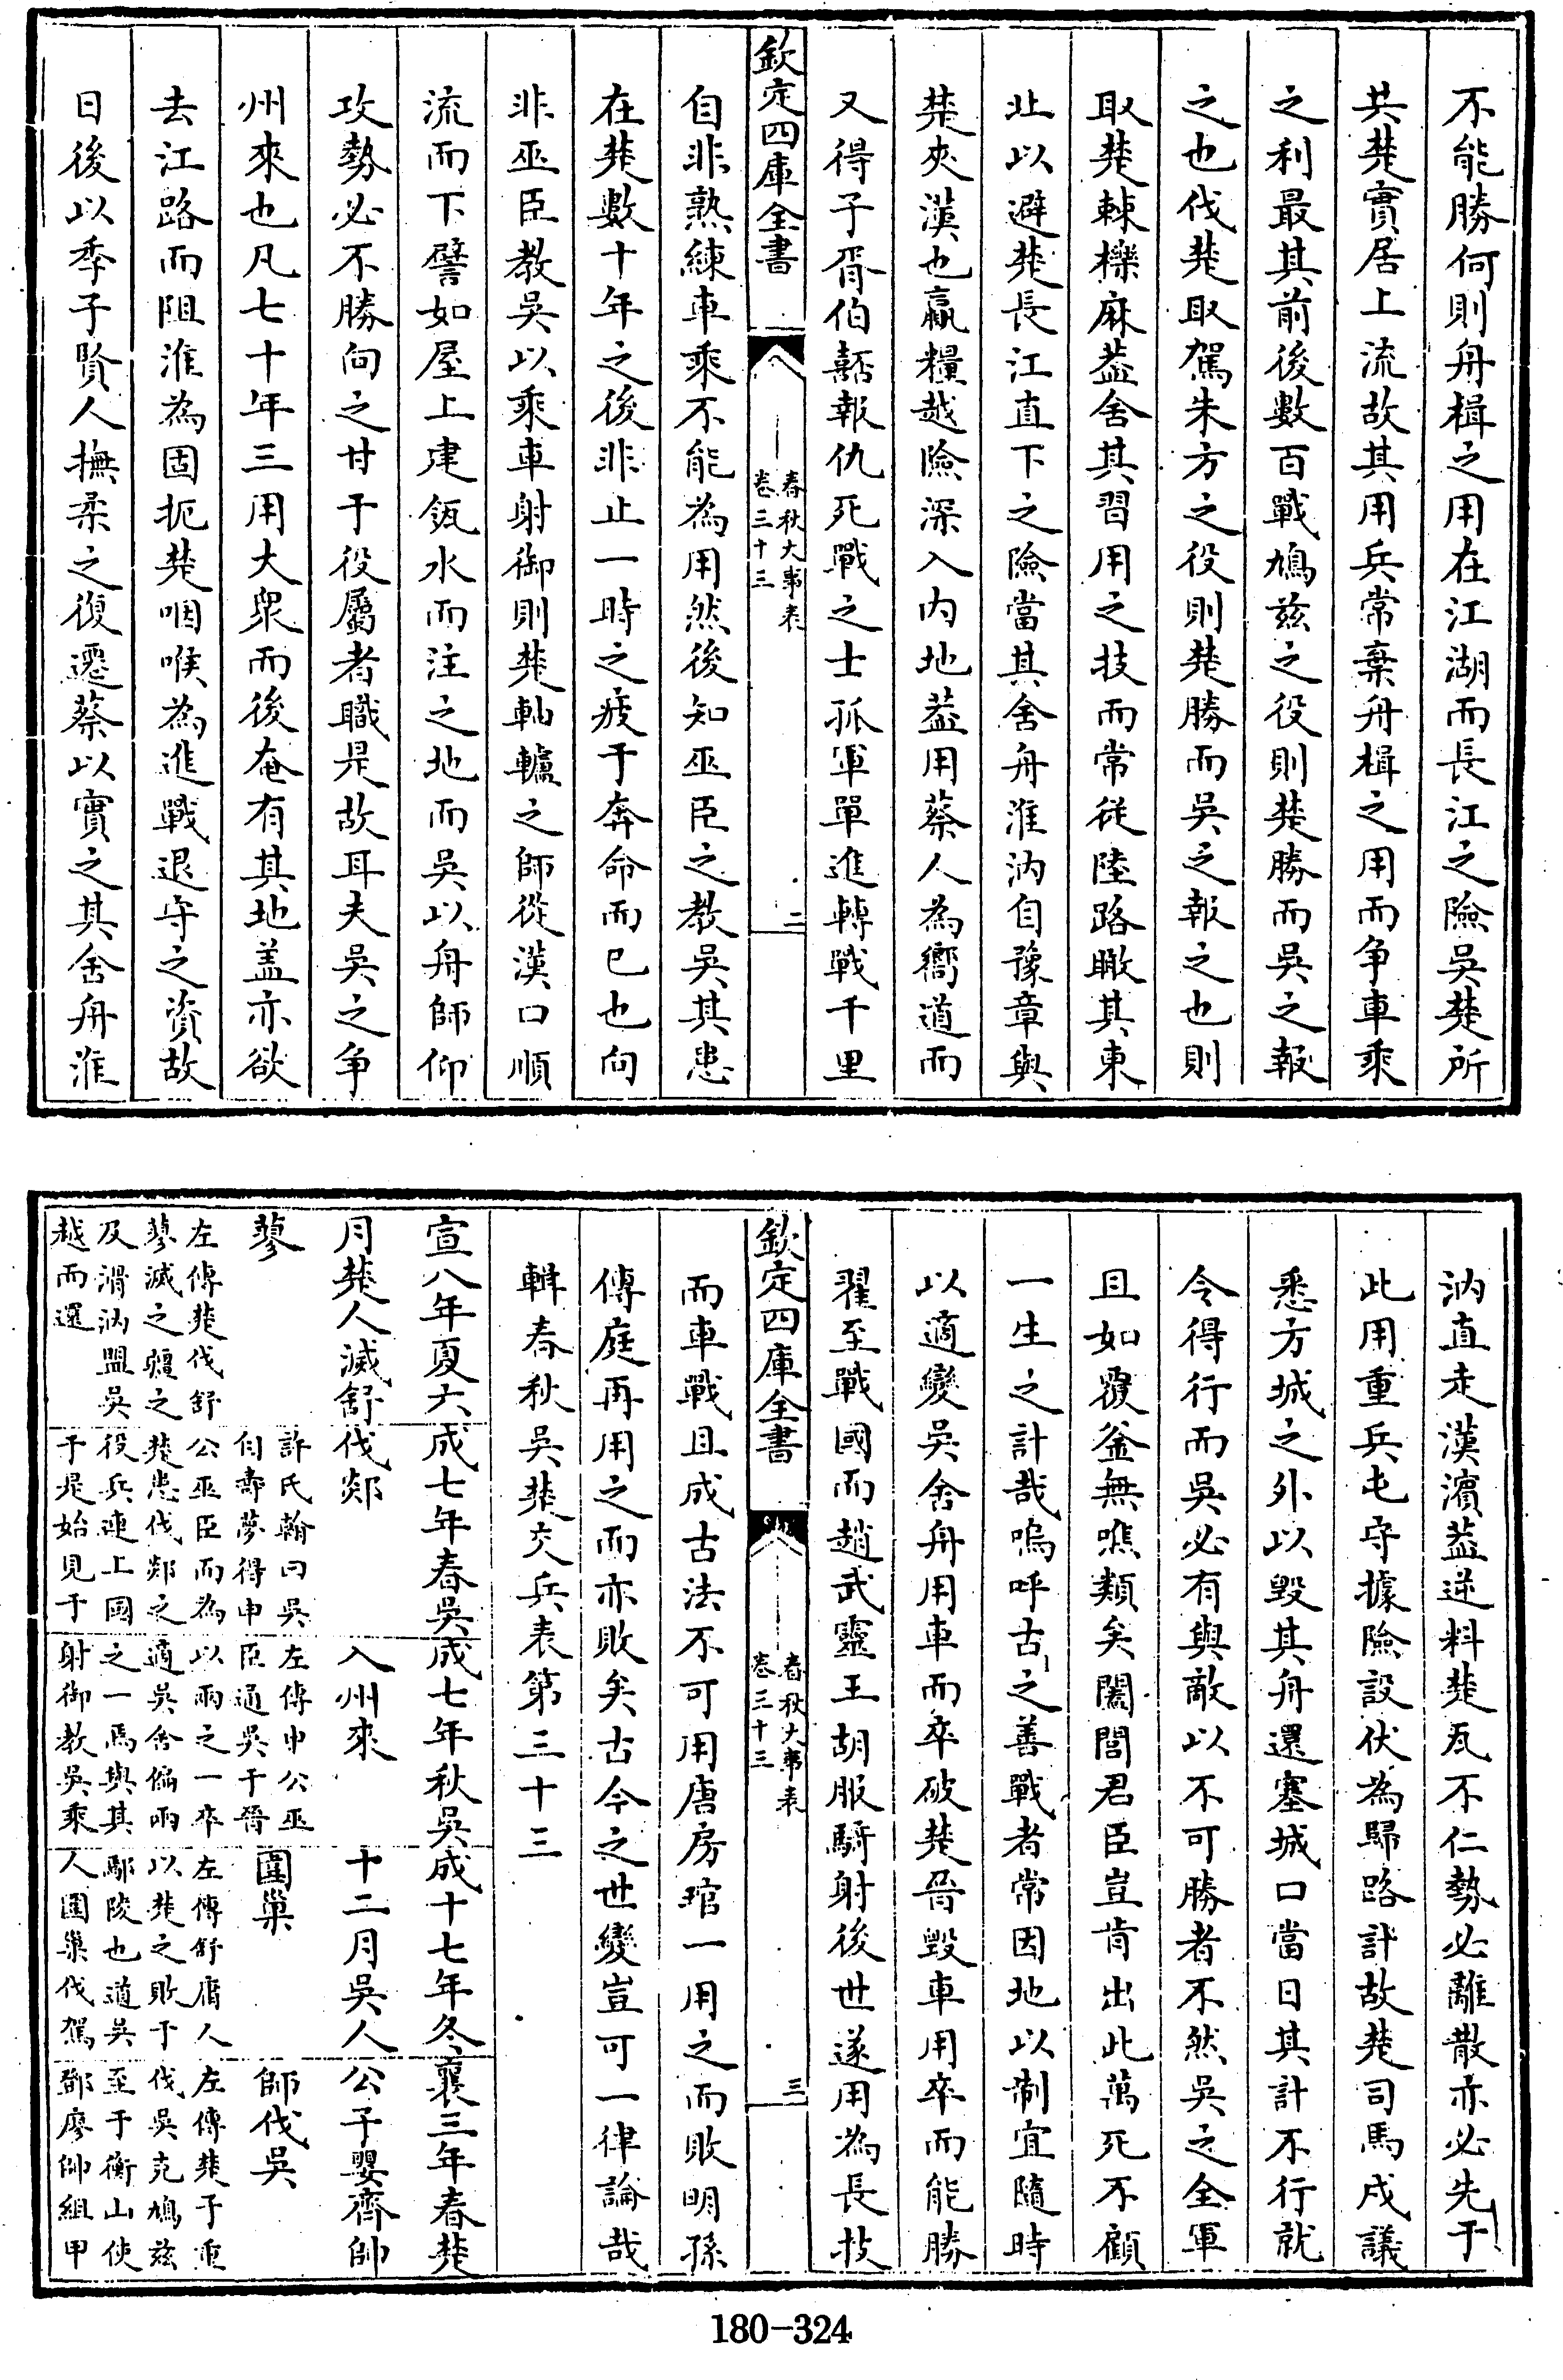 不能勝何則舟楫之用在江湖而長江之險吳楚所
共楚實居上流故其用兵常棄舟楫之用而争車乘
之利最其前後數百戰鳩兹之役則楚勝而吳之報
之也伐楚取駕朱方之役則楚勝而吳之報之也則
取楚棘櫟麻葢舍其習用之技而常從陸路瞰其東
北以避楚長江直下之險當其舍舟淮汭自豫章與
楚夾漢也贏糧越險深入内地葢用蔡人為嚮道而
又得子胥伯嚭報仇死戰之士孤軍單進轉戰千里
欽定四庫全書
春秋大事表
卷三十三
二
自非熟練車乘不能為用然後知巫臣之教吳其患
在楚數十年之後非止一時之疲于奔命而已也向
非巫臣教吳以乘車射御則楚舳艫之師從漢口順
流而下譬如屋上建瓴水而注之地而吳以舟師仰
攻勢必不勝向之甘于役屬者職是故耳夫吳之争
州來也凡七十年三用大衆而後奄有其地盖亦欲
去江路而阻淮為固扼楚咽喉為進戰退守之資故
日後以季子賢人撫柔之復遷蔡以實之其舍舟淮
汭直走漢濱葢逆料楚瓦不仁勢必離散亦必先于
此用重兵屯守據險設伏為歸路計故楚司馬戌議
悉方城之外以毁其舟還塞城口當日其計不行就
令得行而吳必有與敵以不可勝者不然吳之全軍
且如覆釜無噍類矣闔閭君臣豈肯出此萬死不顧
一生之計哉嗚呼古之善戰者常因地以制宜隨時
以適變吳舍舟用車而卒破楚晉毁車用卒而能勝
翟至戰國而趙武靈王胡服騎射後世遂用為長技
欽定四庫全書
春秋大事表
卷三十三
三
而車戰且成古法不可用唐房琯一用之而敗明孫
傳庭再用之而亦敗矣古今之世變豈可一律論哉
輯春秋吳楚交兵表第三十三
宣八年夏六
月楚人滅舒
蓼
左傳楚伐舒
蓼滅之疆之
及滑汭盟吳
越而還
成七年春吳
伐郯
許氏翰曰吳
自壽夢得申
公巫臣而為
楚患伐郯之
役兵連上國
于是始見于
成七年秋吳
入州來
左傳申公巫
臣通吳于晉
以兩之一卒
適吳舍偏兩
之一焉與其
射御教吳乘
成十七年冬
十二月吳人
圍巢
左傳舒庸人
以楚之敗于
鄢陵也道吳
人圍巢伐駕
襄三年春楚
公子嬰齊帥
師伐吳
左傳楚子重
伐吳克鳩兹
至于衡山使
鄧廖帥組甲
180-324